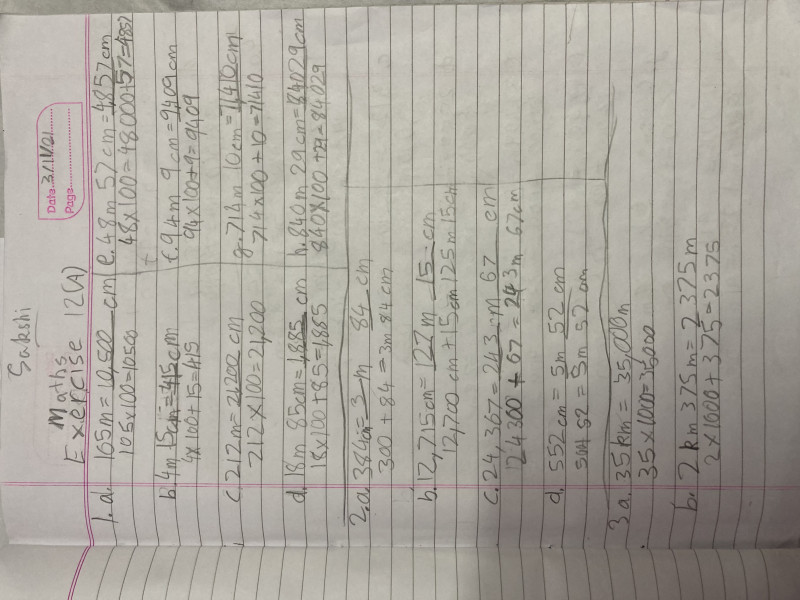 Sakshi
Date. 3/1/21
Page.
Maths
Exercise 12(A)
1. a. 105m = 10,500 cm
105x100=10500
b. 4m 15cm = 415cm
4x100+15=415
c. 212m = 21,200 cm
212x100=21,200
d. 18m 85cm = 1,885 cm
18x100+85=1,885
e. 48m 57cm = 4,857cm
48x100=48,000+57=4857
f. 94m 9cm = 9,409cm
94x100+9=9,409
g. 714m 10cm = 71,410cm
714x100+10=71410
h. 840m 29cm = 84029cm
840x100+29=84,029
2. a. 384cm = 3 m 84 cm
300 + 84 = 3m 84 cm
b. 12,715cm = 127m 15 cm
12,700 cm + 15cm 125m 15cm
c. 24,367 = 243 m 67 cm
24300 + 67 = 243m 67cm
d. 552cm = 5m 52 cm
52 = 5m 52 cm
3 a. 35km = 35,000m
35x1000=35,000
b. 2 km 375m = 2 375 m
2x1000+375=2375